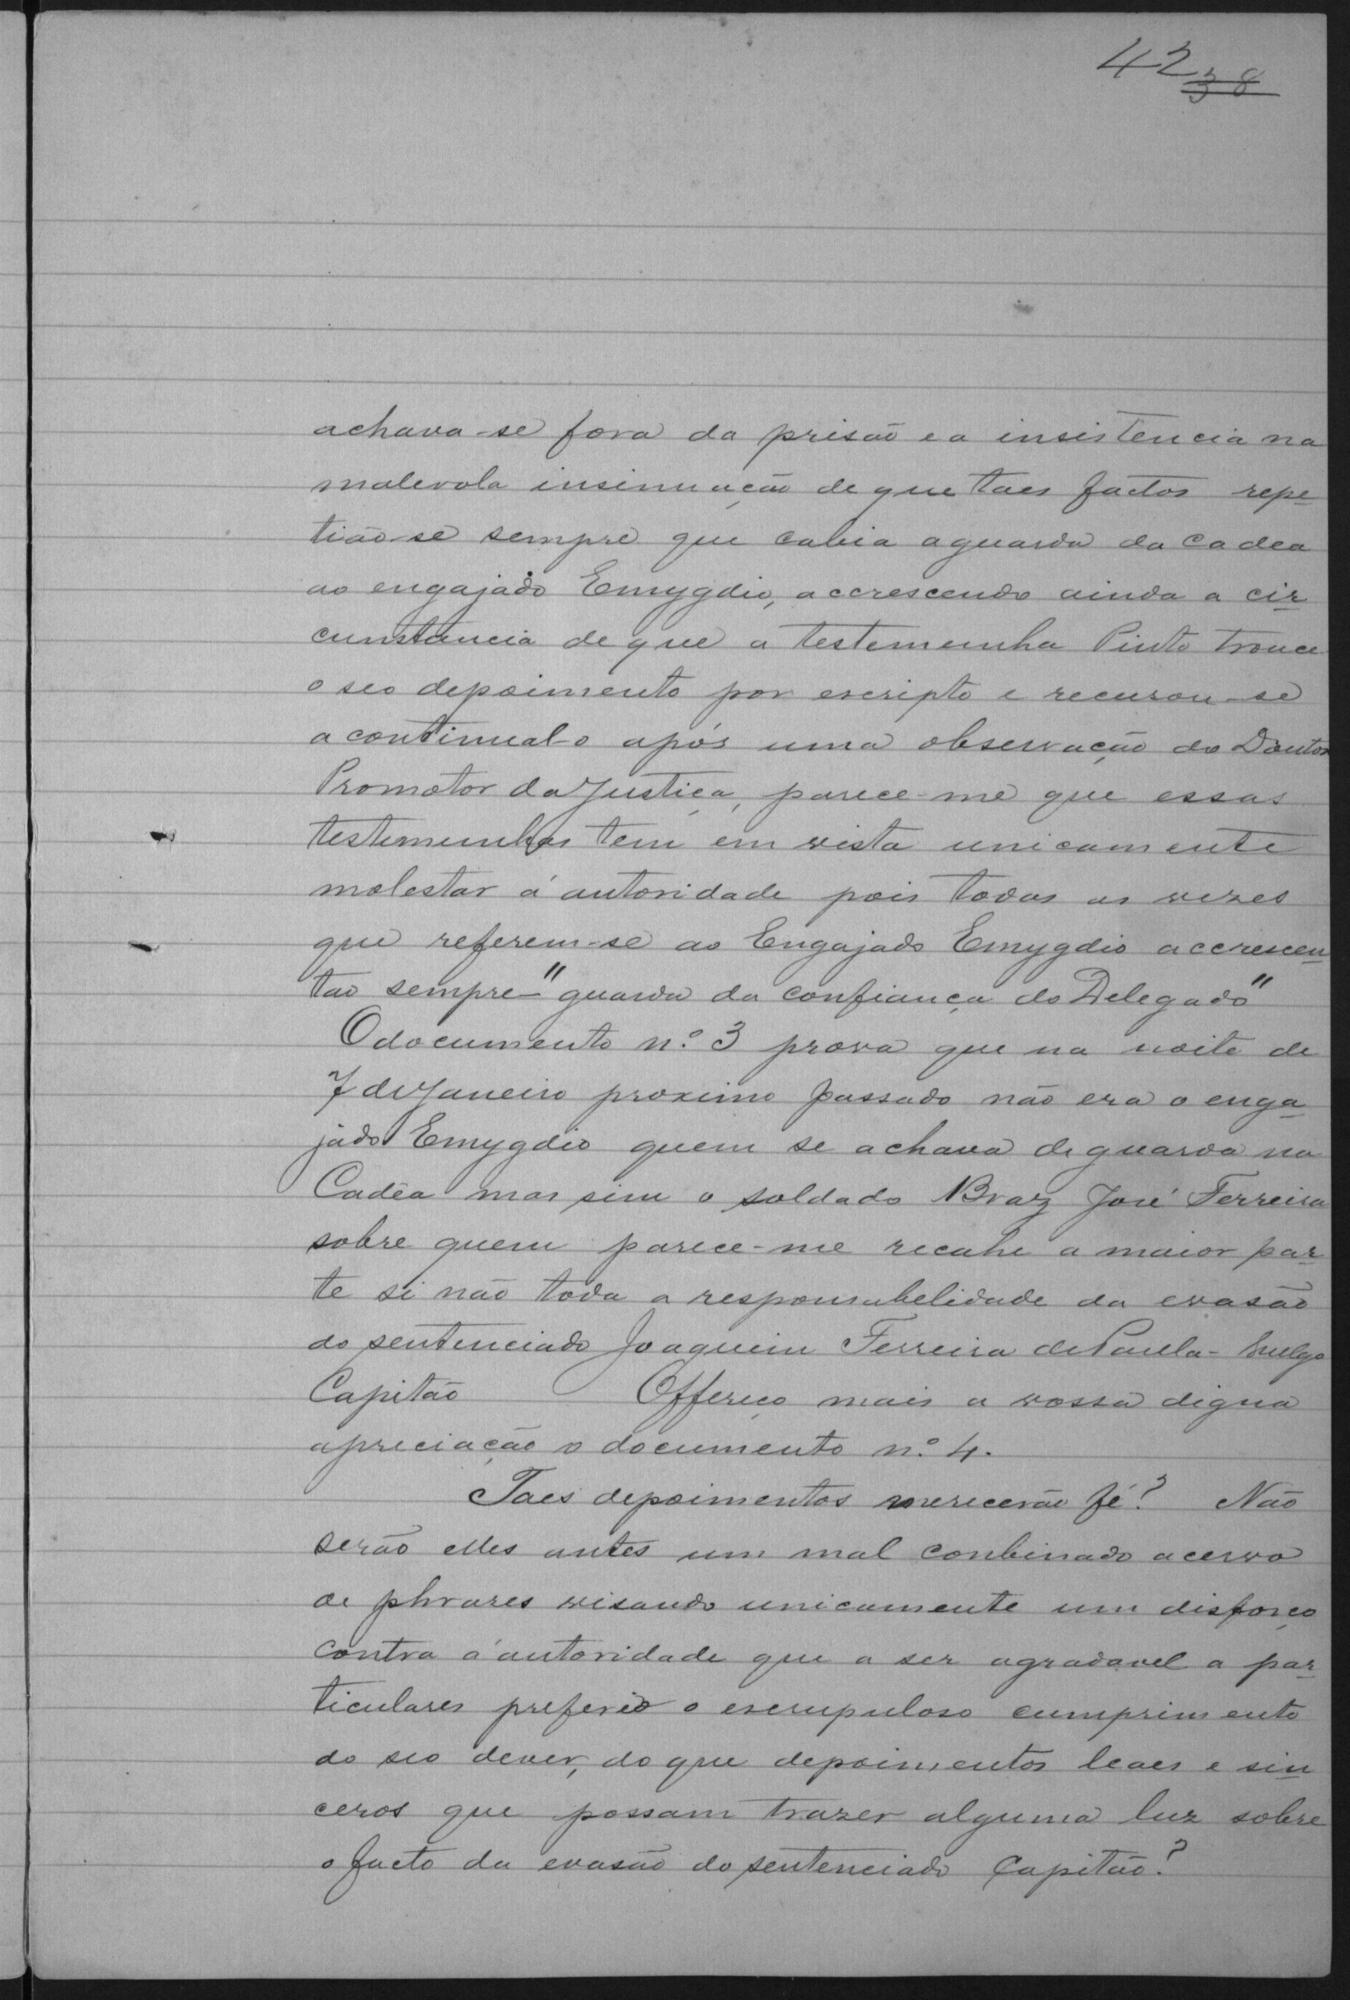 42
38
achava-se fora da prisão e a insistencia na
malevola insinuação de que taes factos repe-
tião-se sempre que cabia a guarda da cadea
ao engajado Emygdio, accrescendo ainda a cir-
cunstancia de que a testemunha Pinto trouce
o seo depoimento por escripto e recusou-se
a continual-o após uma observação do Doutor
Promotor da Justiça, parece-me que essas
testemunhas tem em vista unicamente
molestar á autoridade pois todas as vezes
que referem-se ao Engajado Emygdio accrescen-
tão sempre "guarda da confiança do Delegado"
O documento n.º 3 prova que na noite de
7 de Janeiro proximo passado não era o enga-
jado Emygdio quem se achava de guarda na
Cadêa mas sim o soldado Braz José Ferreira
sobre quem parece-me recahe a maior par-
te si não toda a responsabelidade da evasão
do sentenciado Joaquim Ferreira de Paula - vulgo
Capitão Offereço mais a vossa digna
apreciação o documento n.º 4.
Taes depoimentos merecerão fé? Não
serão elles antes um mal conbinado acervo
de phrases visando unicamente um disforço
contra á autoridade que a ser agradavel a par-
ticulares preferio o escrupuloso cumprimento
do seo dever, do que depoimentos leaes e sin-
ceros que possam trazer alguma luz sobre
o facto da evasão do sentenciado Capitão?